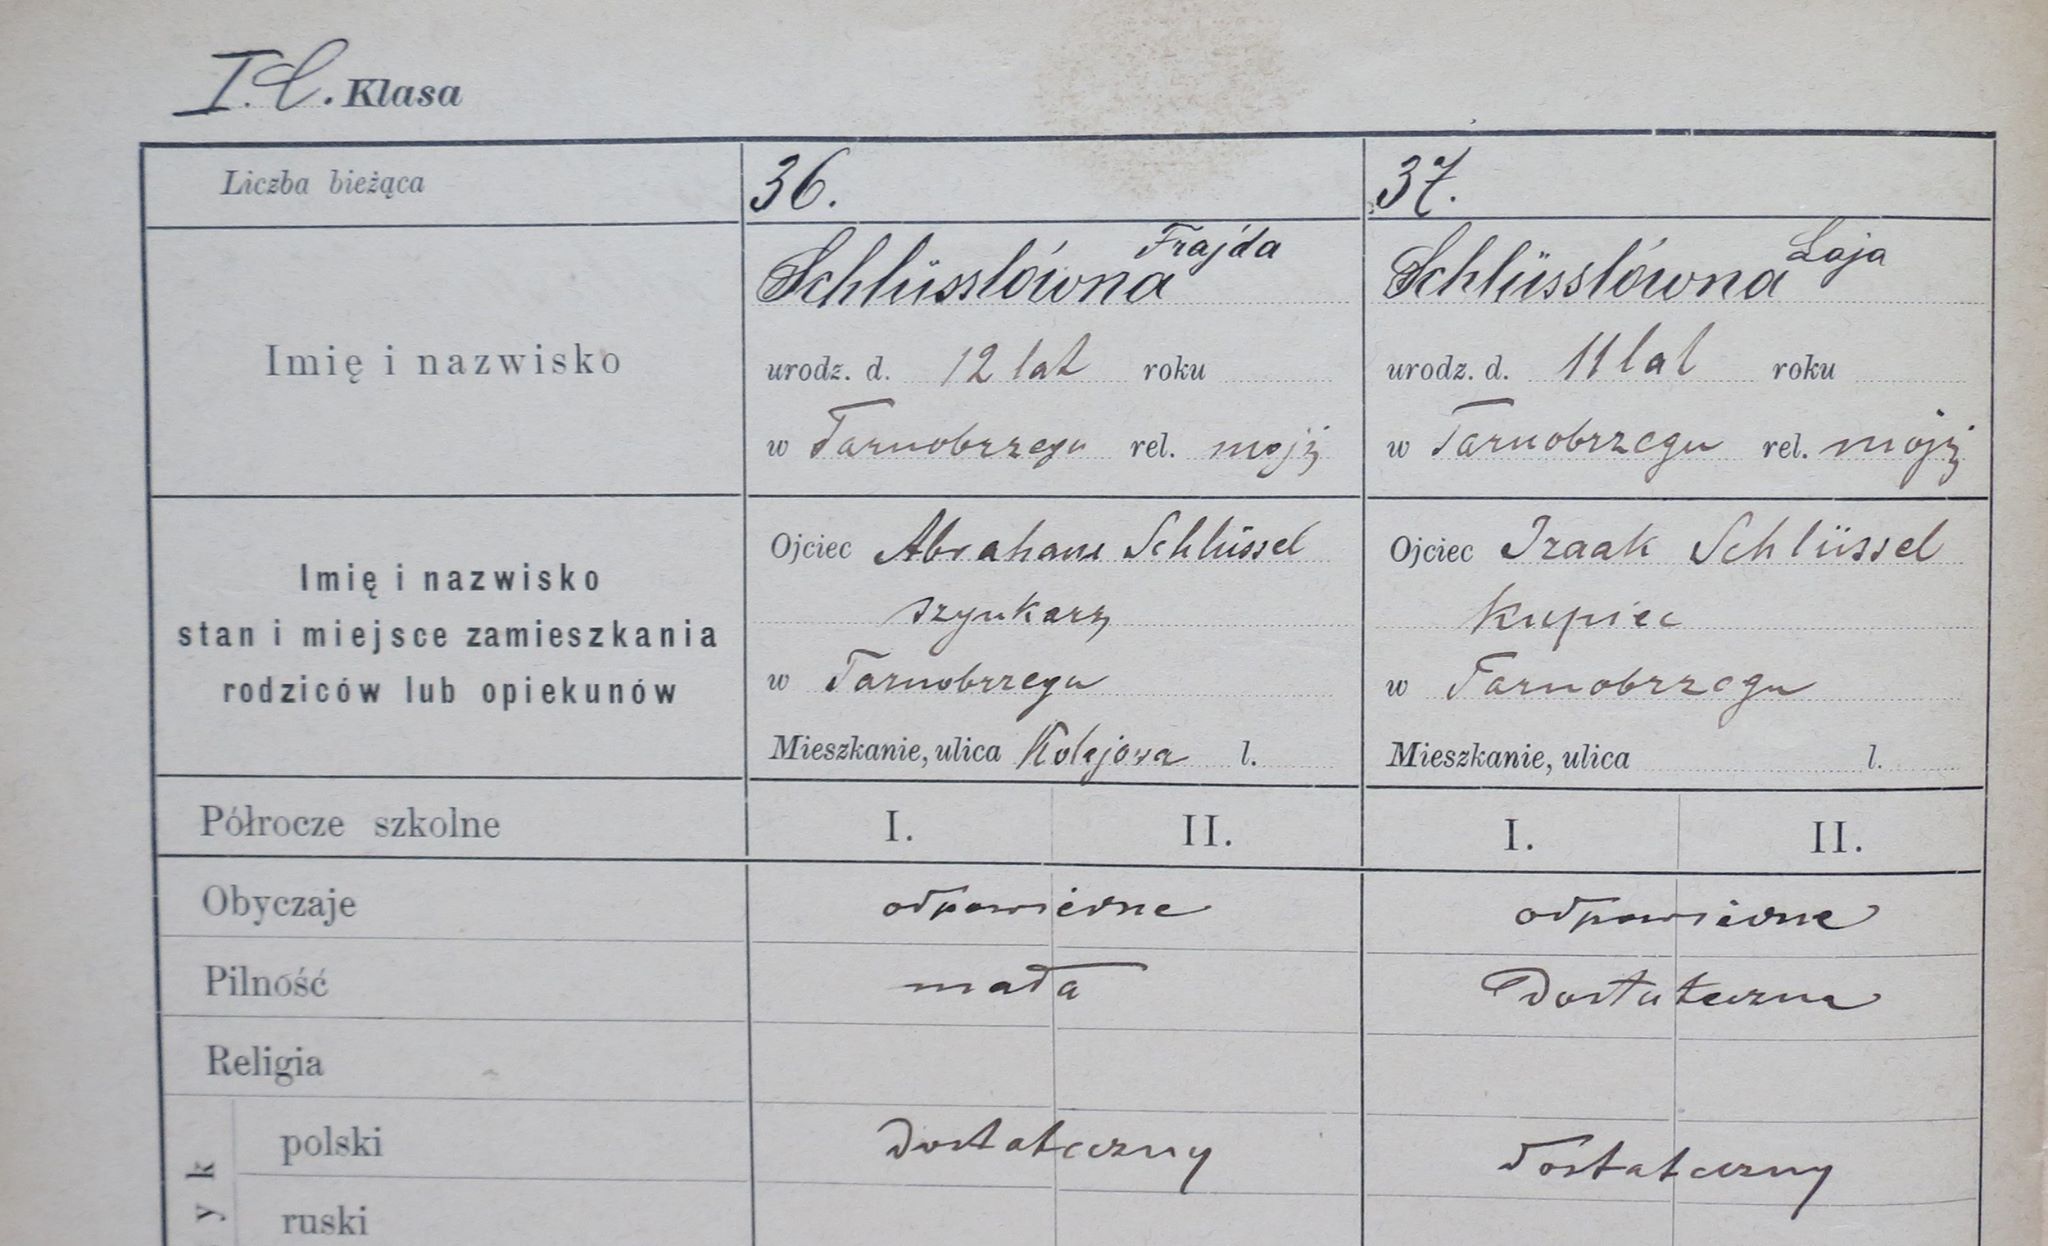 I. C. Klasa
Liczba bieżąca 36. 37.
Imię i nazwisko
Schlüsslówna Frajda
urodz. d. 12 lat roku
w Tarnobrzegu rel. mojż
Schlüsslówna Laja
urodz. d. 11 lat roku
w Tarnobrzegu rel. mojż
Imię i nazwisko
stan i miejsce zamieszkania
rodziców lub opiekunów
Ojciec Abraham Schlüssel
szynkarz
w Tarnobrzegu
Mieszkanie, ulica Kolejowa l.
Ojciec Izaak Schlüssel
kupiec
w Tarnobrzegu
Mieszkanie, ulica l.
Półrocze szkolne I. II. I. II.
Obyczaje odpowiedne odpowiedne
Pilność mała Dostateczna
Religia
polski dostateczny dostateczny
ruski
yk